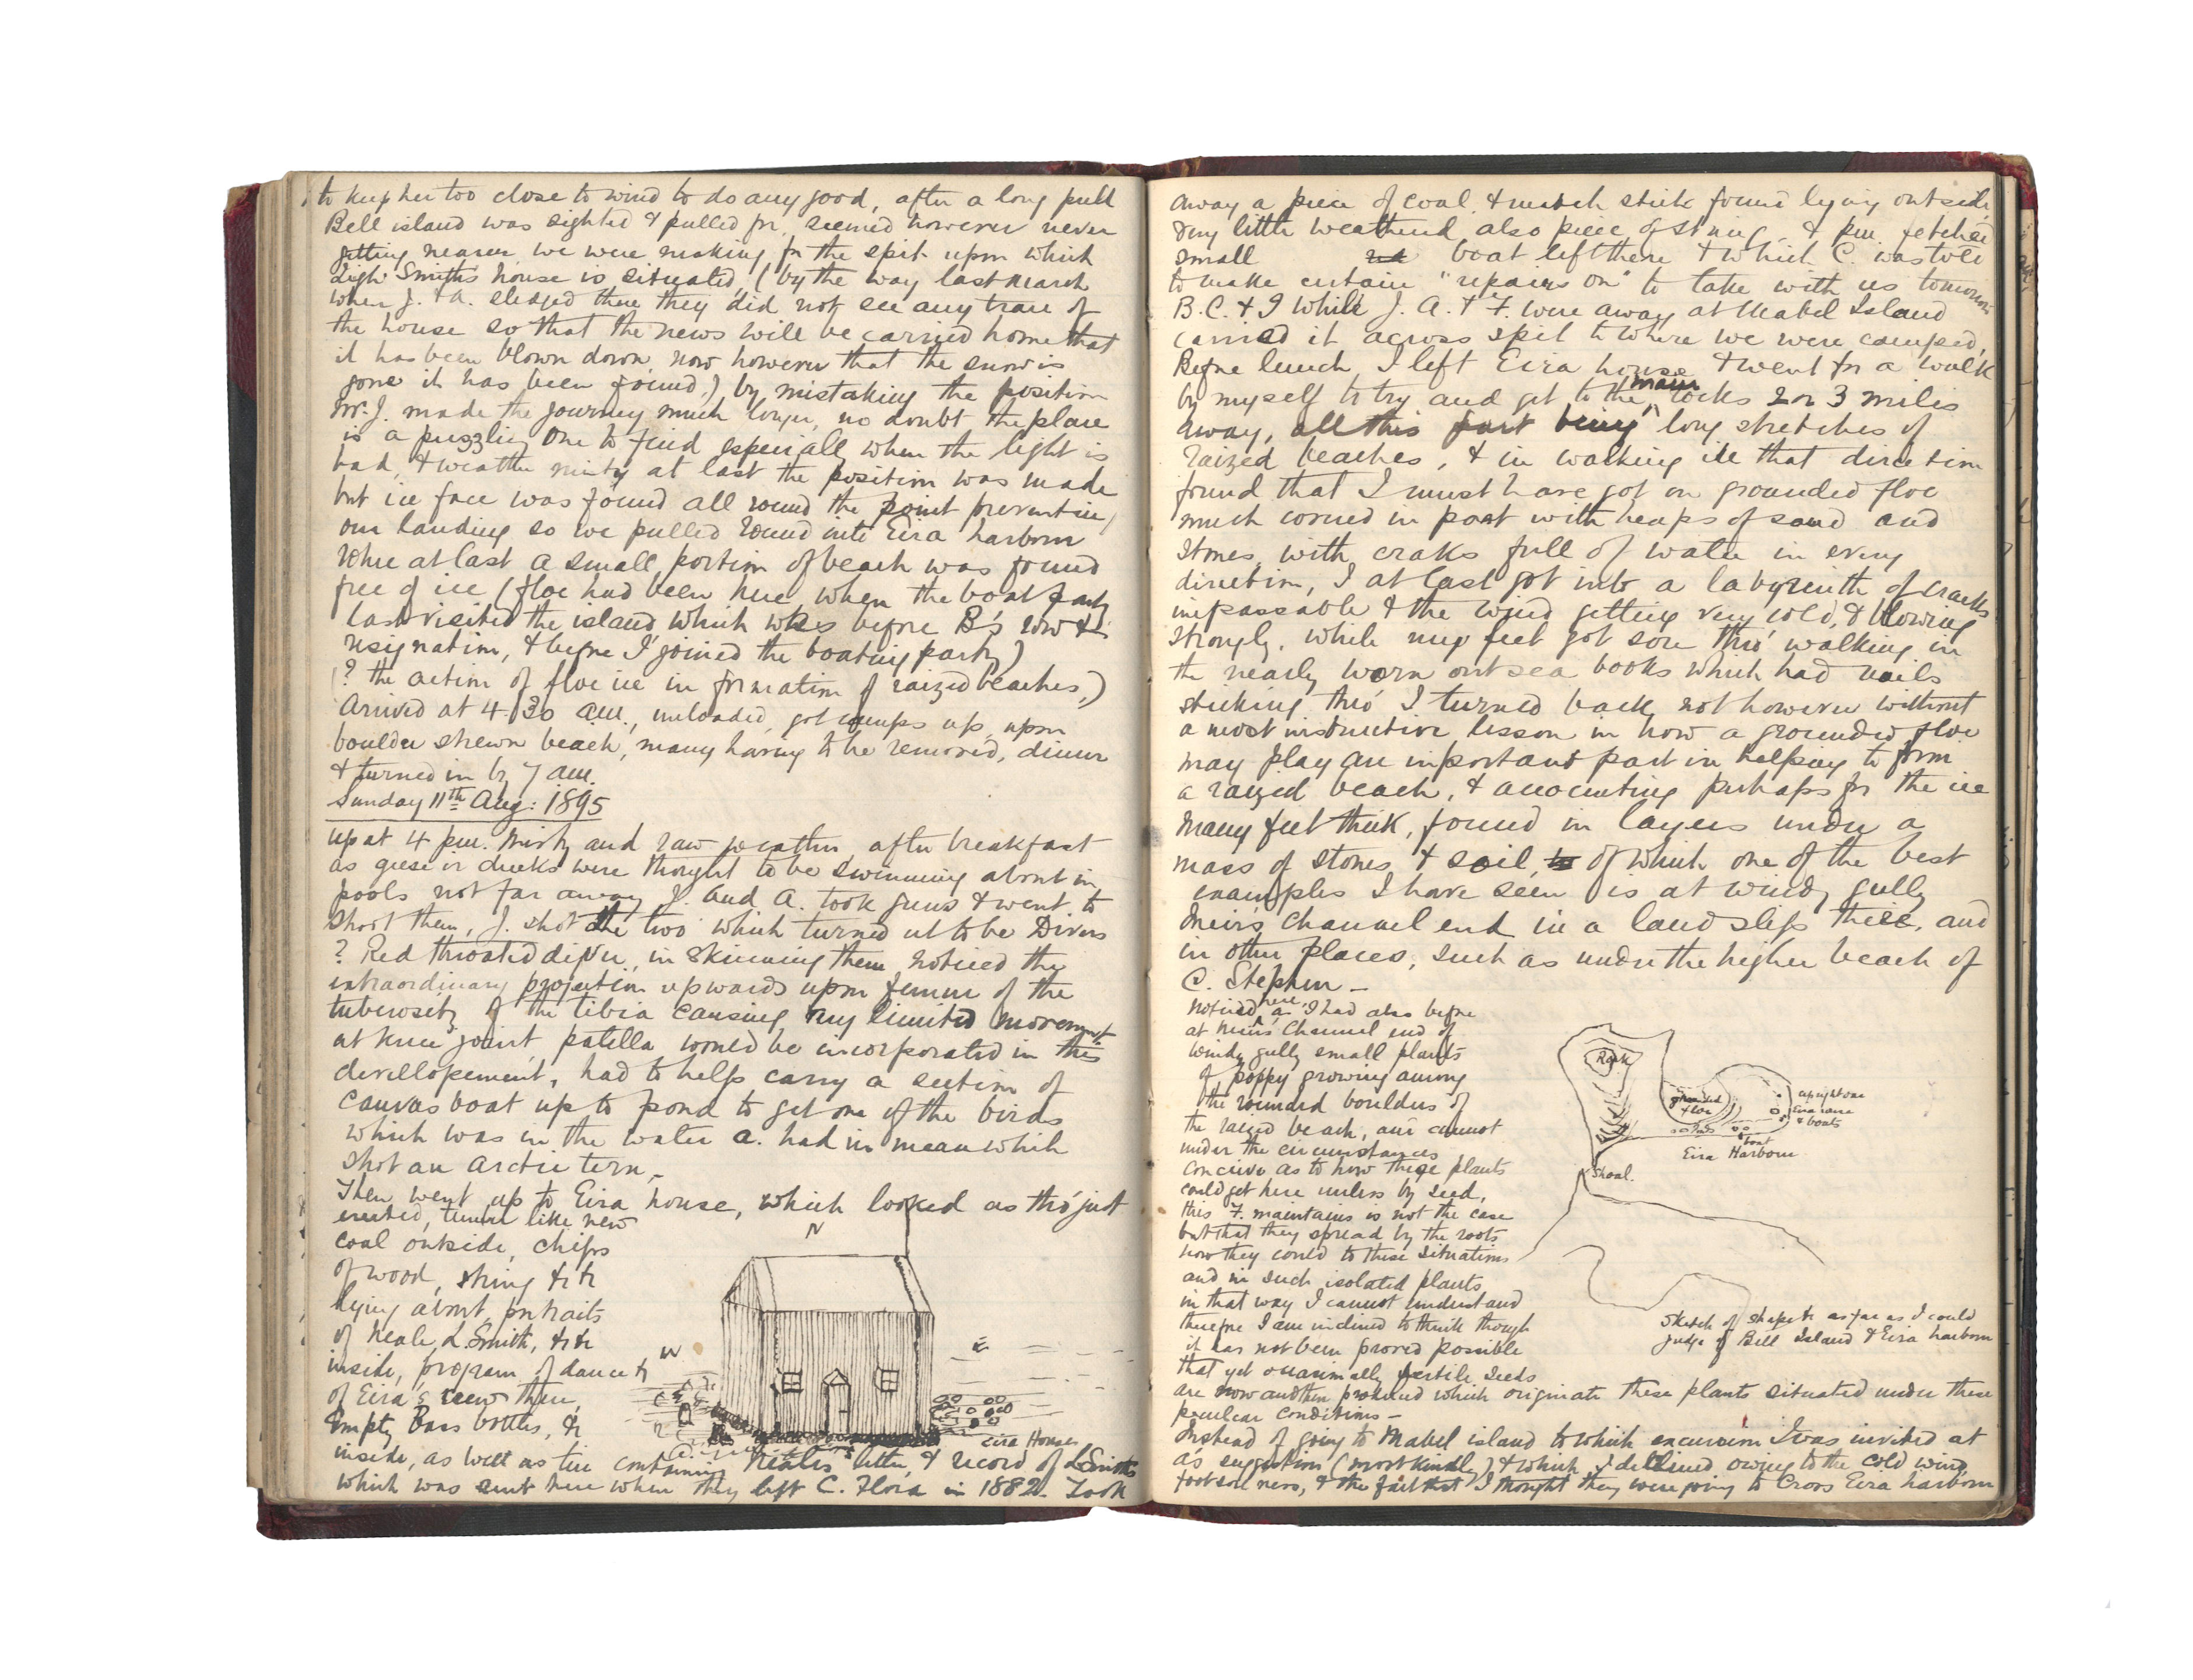 to keep her too close to wind to do any good, after a long pull
Bell island was sighted & pulled for, seemed however never
getting nearer, we were making for the spit upon which
Leigh Smiths house is situated, (by the way last March
when J. & A. sledged there they did not see any trace of
the house so that the news will be carried home that
it has been blown down, now however that the snow is
gone it has been found,) by mistaking the position
Mr. J. made the journey much longer, no doubt the place
is a puzzling one to find especially when the light is
bad, & weather misty at last the position was made
but ice face was found all round the point preventing
our landing so we pulled round into Eira harbour
where at last a small portion of beach was found
free of ice (floe had been here when the boat party
last visited the island which was before B's row &
resignation, & before I joined the boating party)
(? the action of floe ice in formation of raized beaches,)
Arrived at 4.30 a.m., unloaded, got camps up, upon
boulder strewn beach, many having to be removed, dinner
& turned in by 7 am.
Sunday 11th Aug: 1895
up at 4 pm. Misty and raw weather after breakfast
as geese or ducks were thought to be swimming about in
pools not far away J. and A. took guns & went to
shoot them, J. shot the two which turned ut to be Divers
? Red throated diver, in skinning them noticed the
extraordinary projection upwards upon femur of the
tuberosity of the tibia causing very limited movement
at knee joint, patella would be incorporated in this
devellopement, had to help carry a section of
canvas boat up to pond to get one of the birds
which was in the water A. had in meanwhile
shot an Arctic tern,-
Then went up to Eira house, which looked as tho' just
erected, timber like new
coal outside, chips
of wood, string &c &c
lying about, portraits
of Neale, L. Smith, &c &c
inside, program of dance &c
of Eira's crew there,
Empty Bass bottles, &c
inside, as well as tin containing Neales letter & record of L. Smiths
which was sent here when they left C. Flora in 1882. Took
N
W
E
Eira House
away a piece of coal, & match stick found lying outside,
very little weathered also piece of string, & pm. fetched
small boat left there & which C. was told
to make certain "repairs on" to take with us tomorrow
B. C. & I while J. A. & F. were away at Mabel Island
carried it across spit to where we were camped,
Before lunch I left Eira house & went for a walk
by myself to try and get to the main rocks 2 or 3 miles
away, all this part being long stretches of
raized beaches, & in walking in that direction
found that I must have got on grounded floe
much covered in part with heaps of sand and
stones, with craks full of water in every
direction, I at last got into a labyrinth of cracks
impassable & the wind getting very cold, & blowing
strongly, while my feet got sore thro' walking in
the nearly worn out sea boots which had nails
sticking thro' I turned back, not however without
a most instructive lesson in how a grounded floe
may play an important part in helping to form
a raized beach, & accounting perhaps for the ice
many feet thick, found in layers under a
mass of stones & soil, of which one of the best
examples I have seen is at windy gully
Meirs channel end in a land slip there, and
in other places, such as under the higher beach of
C. Stephen -
Noticed here, as I had also before
at Meirs Channel end of
windy gully small plants
of poppy growing among
the rounded boulders of
the raized beach, and cannot
under the circumstances
concieve as to how these plants
could get here unless by seed,
this F. maintains is not the case
but that they spread by the roots
how they could to these situations
and in such isolated plants
in that way I cannot understand
therefore I am inclined to think though
it has not been proved possible
that yet occasionally fertile seeds
are now and then produced which originate these plants situated under these
peculiar conditions -
Instead of going to Mabel island to which excursion I was invited at
A's suggestion (most kindly) & which I declined owing to the cold wind,
foot soreness, & the fact that I thought they were going to Cross Eira harbour
Rock
grounded floe
Eira house & boats
boat
Eira Harbour
Shoal.
Sketch of shape &c as far as I could
judge of Bell Island & Eira harbour